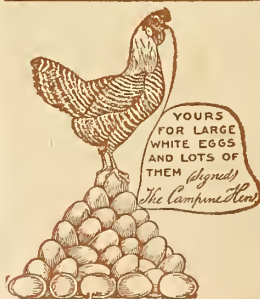 YOURS
FOR LARGE
WHITE EGGS
AND LOTS OF
THEM (signed)
The Campine Hen.